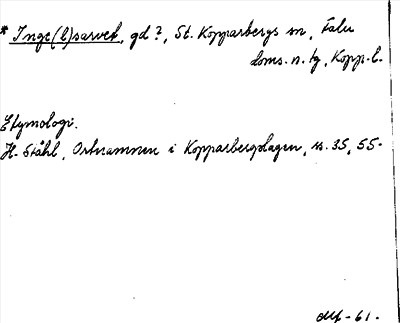 * Inge(l)sarvet, gd ?, St. Kopparbergs sn, Falu
doms. n. tg, Kopp. l.
Etymologi.
H. Ståhl, Ortnamnen i Kopparbergslagen, ss. 35, 55.
-61.